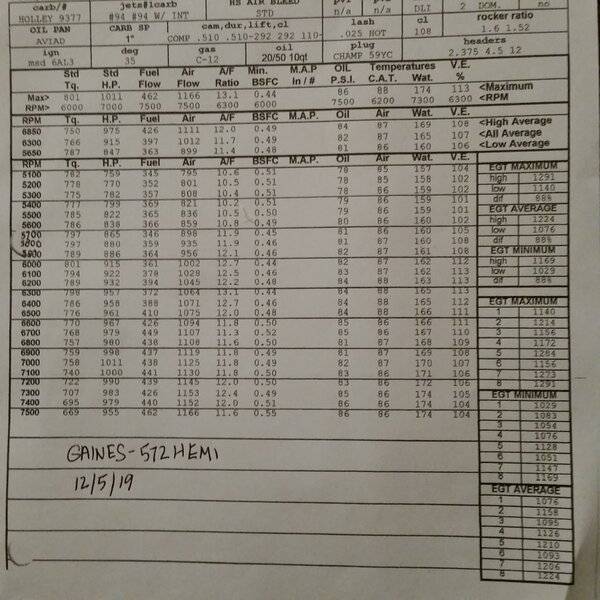 carb/# jets#1carb HS AIR BLEED n/a n/a DLI 2 DOM. no
HOLLEY 9377 #94 #94 W/ INT STD lash cl rocker ratio
OIL PAN CARB SP cam,dur,lift,cl .025 HOT 108 1.6 1.52
AVIAD 1" COMP .510 .510-292 292 110- plug headers
ign deg gas oil CHAMP 59YC 2.375 4.5 12
msd 6AL3 35 C-12 20/50 10qt
Std Std Fuel Air A/F Min. M.A.P OIL Temperatures V.E.
Tq. H.P. Flow Flow Ratio BSFC In / # P.S.I. C.A.T. Wat. %
Max> 801 1011 462 1166 13.1 0.44 86 88 174 113 <Maximum
RPM> 6000 7000 7500 7500 6300 6000 7500 6200 7300 6300 <RPM
RPM Tq. H.P. Fuel Air A/F BSFC M.A.P. Oil Air Wat. V.E.
6850 750 975 426 1111 12.0 0.49 84 87 169 108 <High Average
6300 766 915 397 1012 11.7 0.49 82 87 165 107 <All Average
5650 787 847 363 899 11.4 0.48 81 86 160 106 <Low Average
RPM Tq. H.P. Fuel Air A/F BSFC M.A.P. Oil Air Wat. V.E.
5100 782 759 345 795 10.6 0.51 78 85 157 104
5200 778 770 352 801 10.5 0.51 78 85 158 102
5300 775 782 357 808 10.4 0.51 78 86 159 102
5400 777 799 369 821 10.2 0.51 79 86 159 101
5500 785 822 365 836 10.5 0.50 79 86 159 101
5600 786 838 366 859 10.8 0.49 80 86 160 102
5700 797 865 346 898 11.9 0.45 81 86 160 105
797 880 359 935 11.9 0.46 81 87 160 108
789 886 364 956 12.1 0.46 82 87 161 108
6000 801 915 361 1002 12.7 0.44 82 87 162 112
6100 794 922 378 1028 12.5 0.46 83 87 162 113
6200 789 932 394 1045 12.2 0.48 84 88 163 113
6300 798 957 372 1064 13.1 0.44 84 88 165 113
6400 786 958 388 1071 12.7 0.46 84 88 165 112
6500 776 961 410 1075 12.0 0.48 84 88 166 111
6600 770 967 426 1094 11.8 0.50 85 86 166 111
6700 768 979 449 1107 11.3 0.52 85 86 167 110
6800 757 980 438 1108 11.6 0.50 81 87 168 109
6900 759 998 437 1119 11.8 0.49 81 87 169 108
7000 758 1011 438 1125 11.8 0.49 82 87 170 107
7100 740 1000 441 1130 11.8 0.50 83 86 171 106
7200 722 990 439 1145 12.0 0.50 83 86 172 106
7300 707 983 426 1153 12.4 0.49 85 86 174 105
7400 695 979 440 1152 12.0 0.51 85 86 174 104
7500 669 955 462 1166 11.6 0.55 86 86 174 104
EGT MAXIMUM
high 1291
low 1140
dif 88%
EGT AVERAGE
high 1224
low 1076
dif 88%
EGT MINIMUM
high 1169
low 1029
dif 88%
EGT MAXIMUM
1 1140
2 1214
3 1156
4 1172
5 1284
6 1156
7 1273
8 1291
EGT MINIMUM
1 1029
2 1083
3 1054
4 1076
5 1128
6 1051
7 1147
8 1169
EGT AVERAGE
1 1076
2 1158
3 1095
4 1126
5 1210
6 1093
7 1206
8 1224
GAINES-572 HEMI
12/5/19